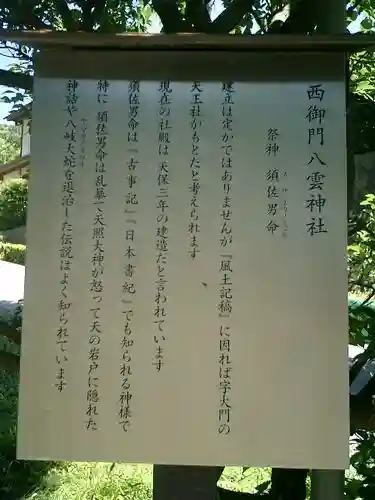 西御門八雲神社
祭神 須佐男命
すさのおのみこと
建立は定かではありませんが『風土記稿』に因れば字大門の
天王社がもとだと考えられます
現在の社殿は 天保三年の建造だと言われています
須佐男命は『古事記』『日本書紀』でも知られる神様で
特に 須佐男命は乱暴で天照大神が怒って天の岩戸に隠れた
神話や八岐大蛇を退治した伝説はよく知られています
やまたのおろち